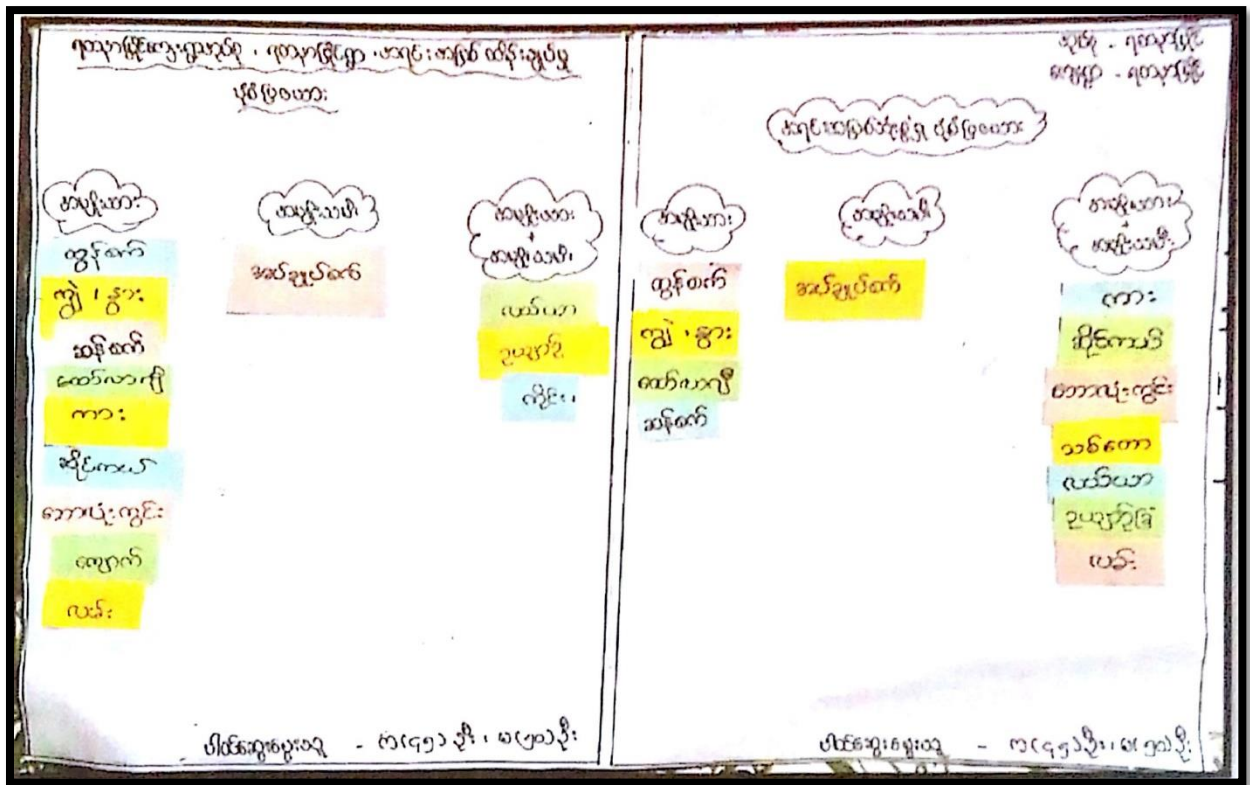 ရတနာမြိုင်ကျေးရွာအုပ်စု ၊ ရတနာမြိုင်ရွာ ၊ အရင်းအမြစ် ထိန်းချုပ်မှု
ပုံစံပြဇယား
အမျိုးသား
ထွန်စက်
ကျွဲ ၊ နွား
ဆန်စက်
ထော်လာဂျီ
ကား
ဆိုင်ကယ်
ဘောလုံးကွင်း
ကျောက်
လမ်း
အမျိုးသမီး
အပ်ချုပ်စက်
အမျိုးသား
+
အမျိုးသမီး
လယ်ယာ
ဥယျာဉ်
ကိုင်း၊
ပါဝင်ဆွေးနွေးသူ - က(၄၅)ဦး ၊ မ(၅၀)ဦး
အုပ်စု - ရတနာမြိုင်
ကျေးရွာ - ရတနာမြိုင်
အရင်းအမြစ်သုံးစွဲမှု ပုံစံပြဇယား
အမျိုးသား
ထွန်စက်
ကျွဲ ၊ နွား
ထော်လာဂျီ
ဆန်စက်
အမျိုးသမီး
အပ်ချုပ်စက်
အမျိုးသား
+
အမျိုးသမီး
ကား
ဆိုင်ကယ်
ဘောလုံးကွင်း
သစ်တော
လယ်ယာ
ဥယျာဉ်ခြံ
လမ်း
ပါဝင်ဆွေးနွေးသူ - က(၄၅)ဦး ၊ မ(၅၀)ဦး